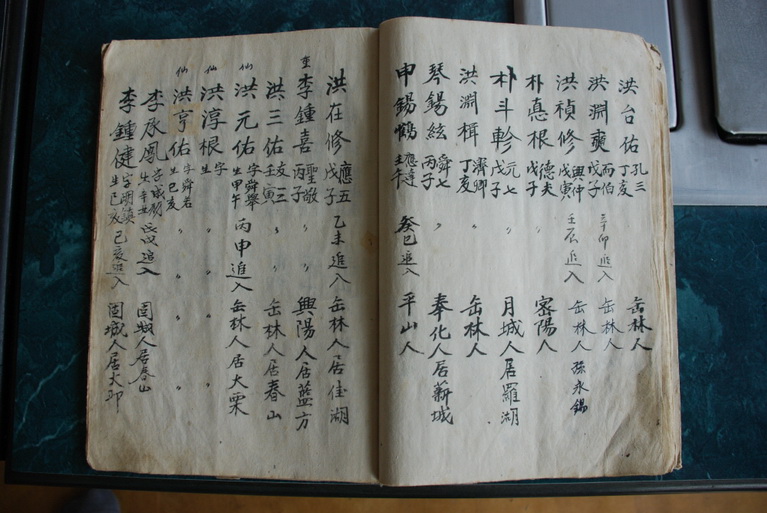 洪台佑 孔三 丁亥 缶林人
洪淵奭 而伯 戊子 辛卯追入 缶林人
洪禎修 興仲 戊寅 壬辰追入 缶林人 孫永錫
朴悳根 德夫 戊子 〃 密陽人
朴斗軫 元七 戊子 〃 月城人居羅湖
洪淵楫 濟卿 丁亥 〃 缶林人
琴錫絃 舜七 丙子 〃 奉化人居薪城
申錫鶴 應達 壬午 癸巳追入 平山人
洪在修 應五 戊子 乙未追入 缶林人居佳湖
李鍾喜 聖敬 丙子 〃 興陽人居藍方
洪三佑 友三 壬寅 〃 缶林人居春山
仙 洪元佑 字舜舉 生甲午 丙申追入 缶林人居大栗
仙 洪淳根 字 生 〃 〃
仙 洪亨佑 字舜若 生己亥 〃 〃
李承鳳 字 生辛丑 追入 固城人居春山
李鍾健 字國鎮 生己亥 己亥追入 固城人居大